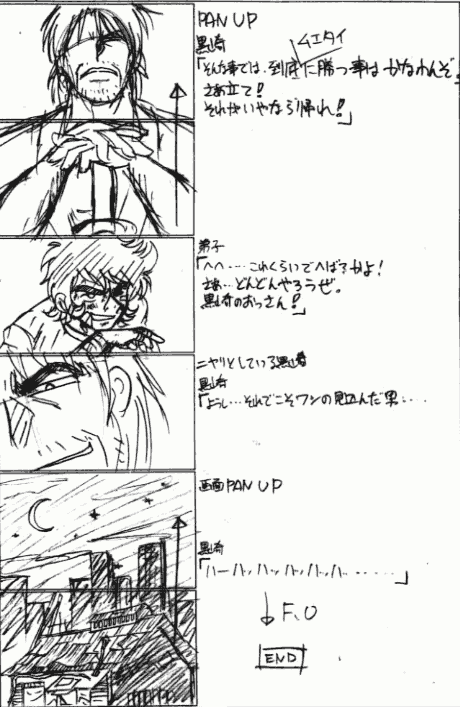 PAN UP
黒崎
ムエタイ
「そんな事では、到底に勝つ事は かなわんぞ。
さあ立て!
それがいやなら帰れ!」
弟子
「へへ・・・・これくらいでへばるかよ!
さあ…どんどんやろうぜ。
黒崎のおっさん!」
ニヤリとしている黒崎
黒崎
「ようし…それでこそワシの見込んだ男・・・・
画面PAN UP
黒崎
「ハーハッハッハッハッハ・・・・・・」
F.O
END